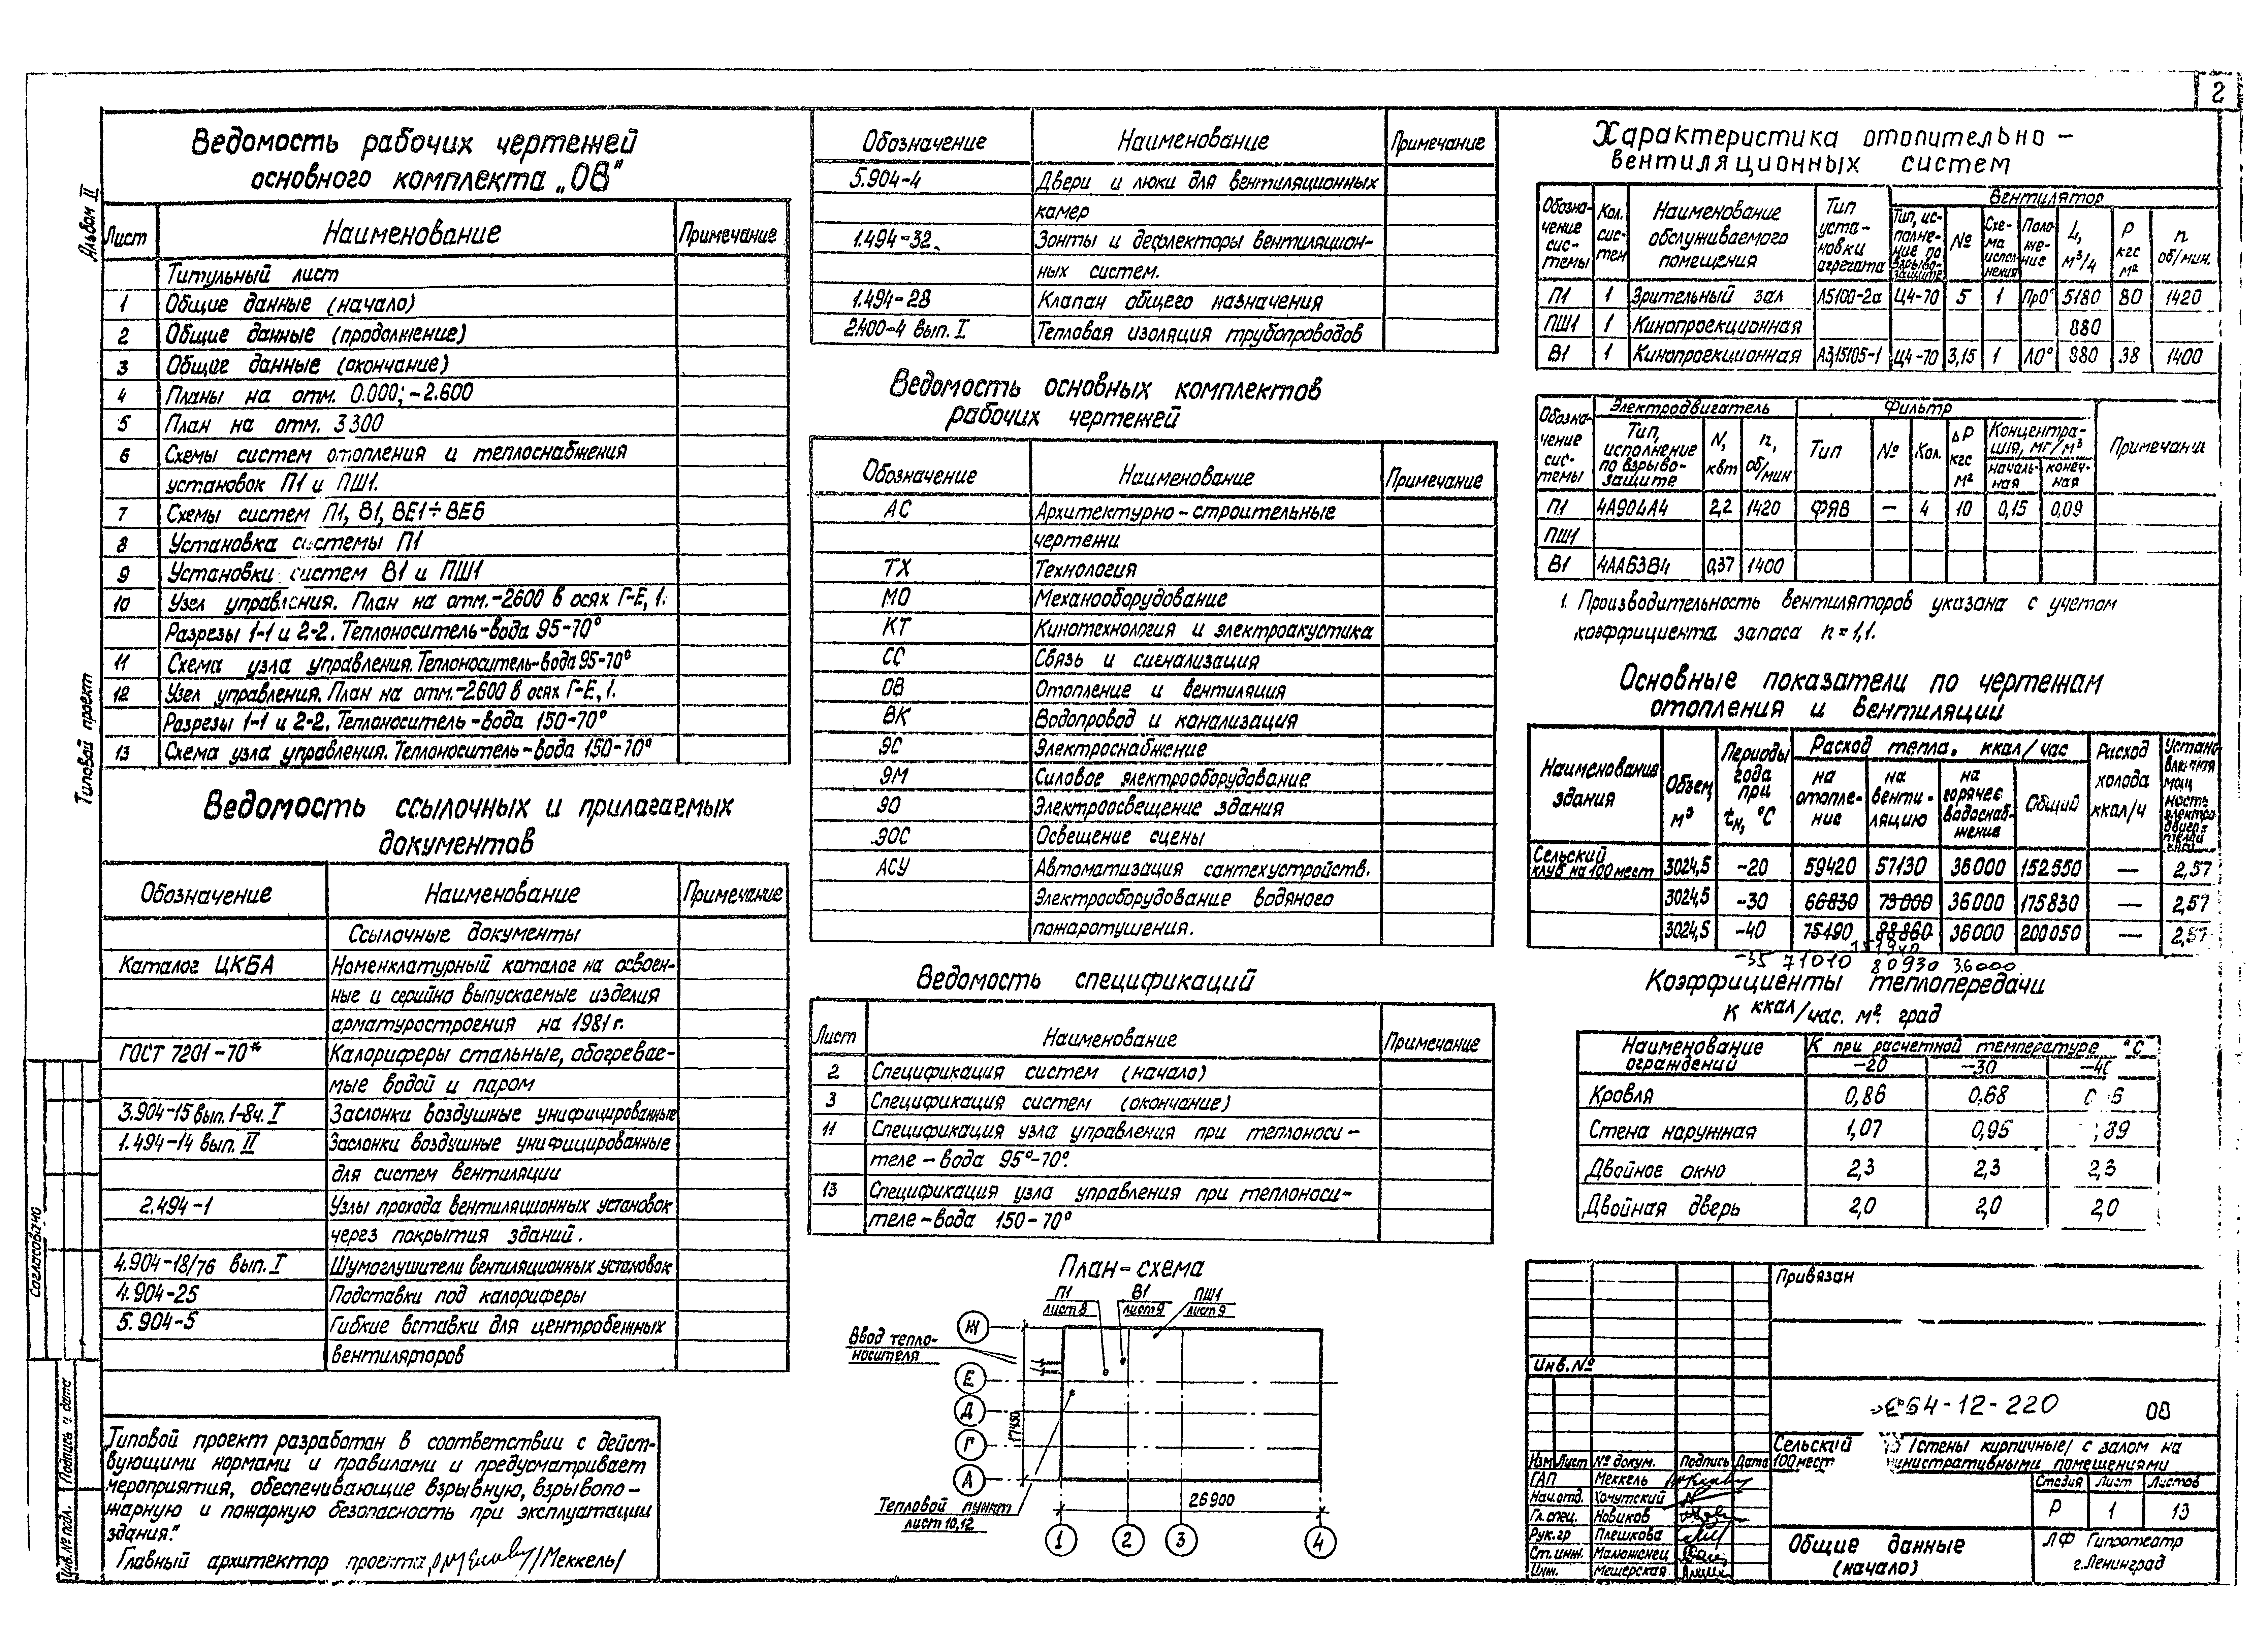 2
Альбом II
Типовой проект
Согласовано
Подпись и дата
Инв.№ подл.
Ведомость рабочих чертежей
основного комплекта „ОВ"
Лист Наименование Примечание
Титульный лист
1 Общие данные (начало)
2 Общие данные (продолжение)
3 Общие данные (окончание)
4 Планы на отм. 0.000; -2.600
5 План на отм. 3300
6 Схемы систем отопления и теплоснабжения
установок П1 и ПШ1.
7 Схемы систем П1, В1, ВЕ1÷ВЕ6
8 Установка системы П1
9 Установки систем В1 и ПШ1
10 Узел управления. План на отм.-2600 в осях Г-Е, 1.
Разрезы 1-1 и 2-2. Теплоноситель-вода 95-70°
11 Схема узла управления. Теплоноситель-вода 95-70°
12 Узел управления. План на отм.-2600 в осях Г-Е, 1.
Разрезы 1-1 и 2-2. Теплоноситель-вода 150-70°
13 Схема узла управления. Теплоноситель-вода 150-70°
Ведомость ссылочных и прилагаемых
документов
Обозначение Наименование Примечание
Ссылочные документы
Каталог ЦКБА Номенклатурный каталог на освоен-
ные и серийно выпускаемые изделия
арматуростроения на 1981г.
ГОСТ 7201-70* Калориферы стальные, обогревае-
мые водой и паром
3.904-15 вып. 1-8ч. I Заслонки воздушные унифицированные
1.494-14 вып. II Заслонки воздушные унифицированные
для систем вентиляции
2.494-1 Узлы прохода вентиляционных установок
через покрытия зданий.
4.904-18/76 вып. I Шумоглушители вентиляционных установок
4.904-25 Подставки под калориферы
5.904-5 Гибкие вставки для центробежных
вентиляторов
Типовой проект разработан в соответствии с дейст-
вующими нормами и правилами и предусматривает
мероприятия, обеспечивающие взрывную, взрывопо-
жарную и пожарную безопасность при эксплуатации
здания."
Главный архитектор проекта /Меккель/
Обозначение Наименование Примечание
5.904-4 Двери и люки для вентиляционных
камер
1.494-32 Зонты и дефлекторы вентиляцион-
ных систем.
1.494-28 Клапан общего назначения
2.400-4 вып. I Тепловая изоляция трубопроводов
Ведомость основных комплектов
рабочих чертежей
Обозначение Наименование Примечание
АС Архитектурно-строительные
чертежи
ТХ Технология
МО Механооборудование
КТ Кинотехнология и электроакустика
СС Связь и сигнализация
ОВ Отопление и вентиляция
ВК Водопровод и канализация
ЭС Электроснабжение
ЭМ Силовое электрооборудование
ЭО Электроосвещение здания
ЭОС Освещение сцены
АСУ Автоматизация сантехустройств.
Электрооборудование водяного
пожаротушения.
Ведомость спецификаций
Лист Наименование Примечание
2 Спецификация систем (начало)
3 Спецификация систем (окончание)
11 Спецификация узла управления при теплоноси-
теле-вода 95°-70°.
13 Спецификация узла управления при теплоноси-
теле-вода 150-70°
План-схема
П1 В1 ПШ1
лист 8 лист 9 лист 9
Ввод тепло-
носителя
Ж
Е
Д
Г
А
17450
Тепловой пункт
лист 10,12
26900
1 2 3 4
Характеристика отопительно-
вентиляционных систем
Обозна-
чение
сис-
темы
Кол.
сис-
тем
Наименование
обслуживаемого
помещения
Тип
уста-
новки
агрегата
Вентилятор
Тип, ис-
полне-
ние по
взрыво-
защите
№
Схе-
ма
испол-
нения
Поло-
же-
ние
L,
м³/ч
Р
кгс
м²
п
об/мин.
П1 1 Зрительный зал А5100-2а Ц4-70 5 1 Пр0° 5180 80 1420
ПШ1 1 Кинопроекционная 880
В1 1 Кинопроекционная А3,15105-1 Ц4-70 3,15 1 Л0° 880 38 1400
Обозна-
чение
сис-
темы
Электродвигатель
Тип,
исполнение
по взрыво-
защите
N,
квт
п,
об/мин
Фильтр
Тип № Кол.
ΔР
кгс
м²
Концентра-
ция, мг/м³
началь-
ная
конеч-
ная
Примечание
П1 4А90LА4 2,2 1420 ФЯВ — 4 10 0,15 0,09
ПШ1
В1 4АА63В4 0,37 1400
1. Производительность вентиляторов указана с учетом
коэффициента запаса п=1,1.
Основные показатели по чертежам
отопления и вентиляции
Наименование
здания
Объем
м³
Периоды
года
при
tн, °С
Расход тепла, ккал/час
на
отопле-
ние
на
венти-
ляцию
на
горячее
водоснаб-
жение
Общий
Расход
холода
ккал/ч
Сельский
клуб на 100 мест 3024,5 -20 59420 57130 36000 152550 — 2,57
3024,5 -30 66830 73000 36000 175830 — 2,57
3024,5 -40 75190 88860 36000 200050 — 2,57
-35 71010 80930 36000
Коэффициенты теплопередачи
К ккал/час. м². град
Наименование
ограждений
К при расчетной температуре °С
-20 -30 -40
Кровля 0,86 0,68
Стена наружная 1,07 0,95
Двойное окно 2,3 2,3 2,3
Двойная дверь 2,0 2,0 2,0
Привязан
Инв.№
64-12-220 ОВ
Сельский /стены кирпичные/ с залом на
100 мест помещениями
Изм Лист № докум. Подпись Дата
ГАП Меккель
Нач.отд. Хочутский
Гл.спец. Новиков
Рук.гр Плешкова
Ст.инж. Малюженец
Инж. Мещерская
Стадия Лист Листов
Р 1 13
Общие данные
(начало)
ЛФ Гипротеатр
г.Ленинград